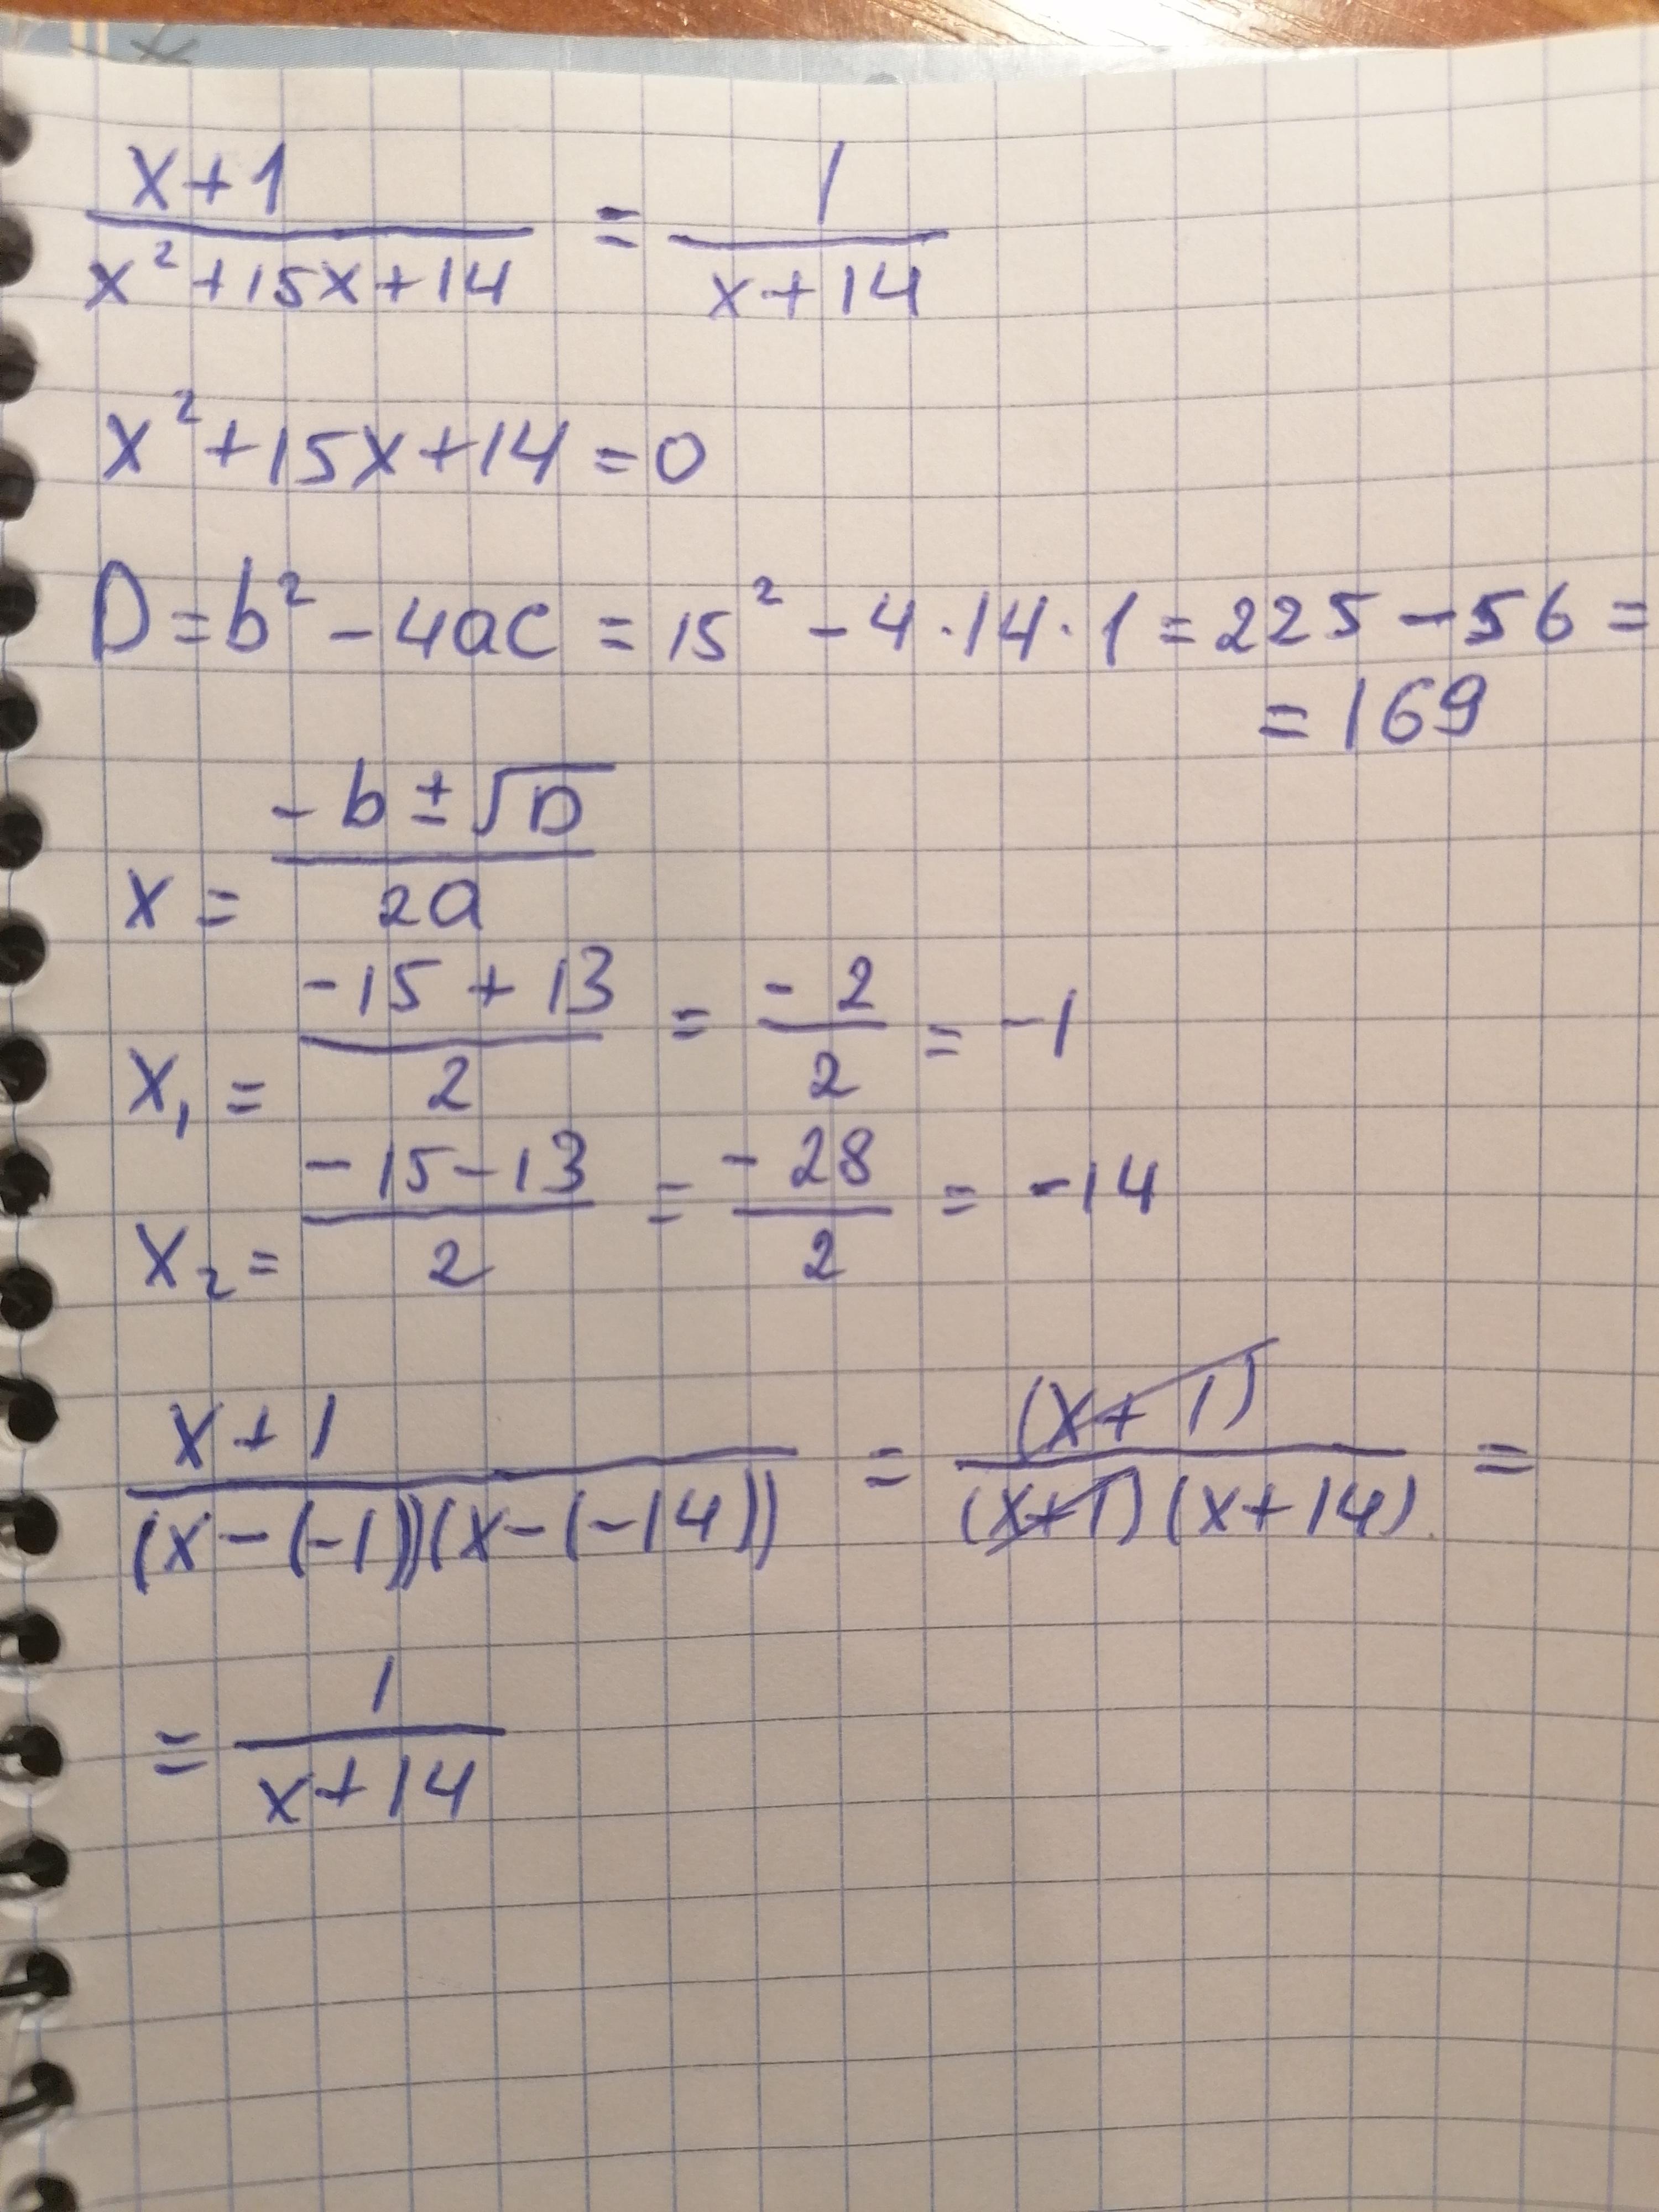 (x+1)/(x²+15x+14) = 1/(x+14)
x²+15x+14=0
D=b²-4ac=15²-4·14·1=225-56=
=169
x = (-b±√D)/(2a)
x₁ = (-15+13)/2 = (-2)/2 = -1
x₂ = (-15-13)/2 = (-28)/2 = -14
(x+1)/((x-(-1))(x-(-14))) = (x+1)/((x+1)(x+14)) =
= 1/(x+14)